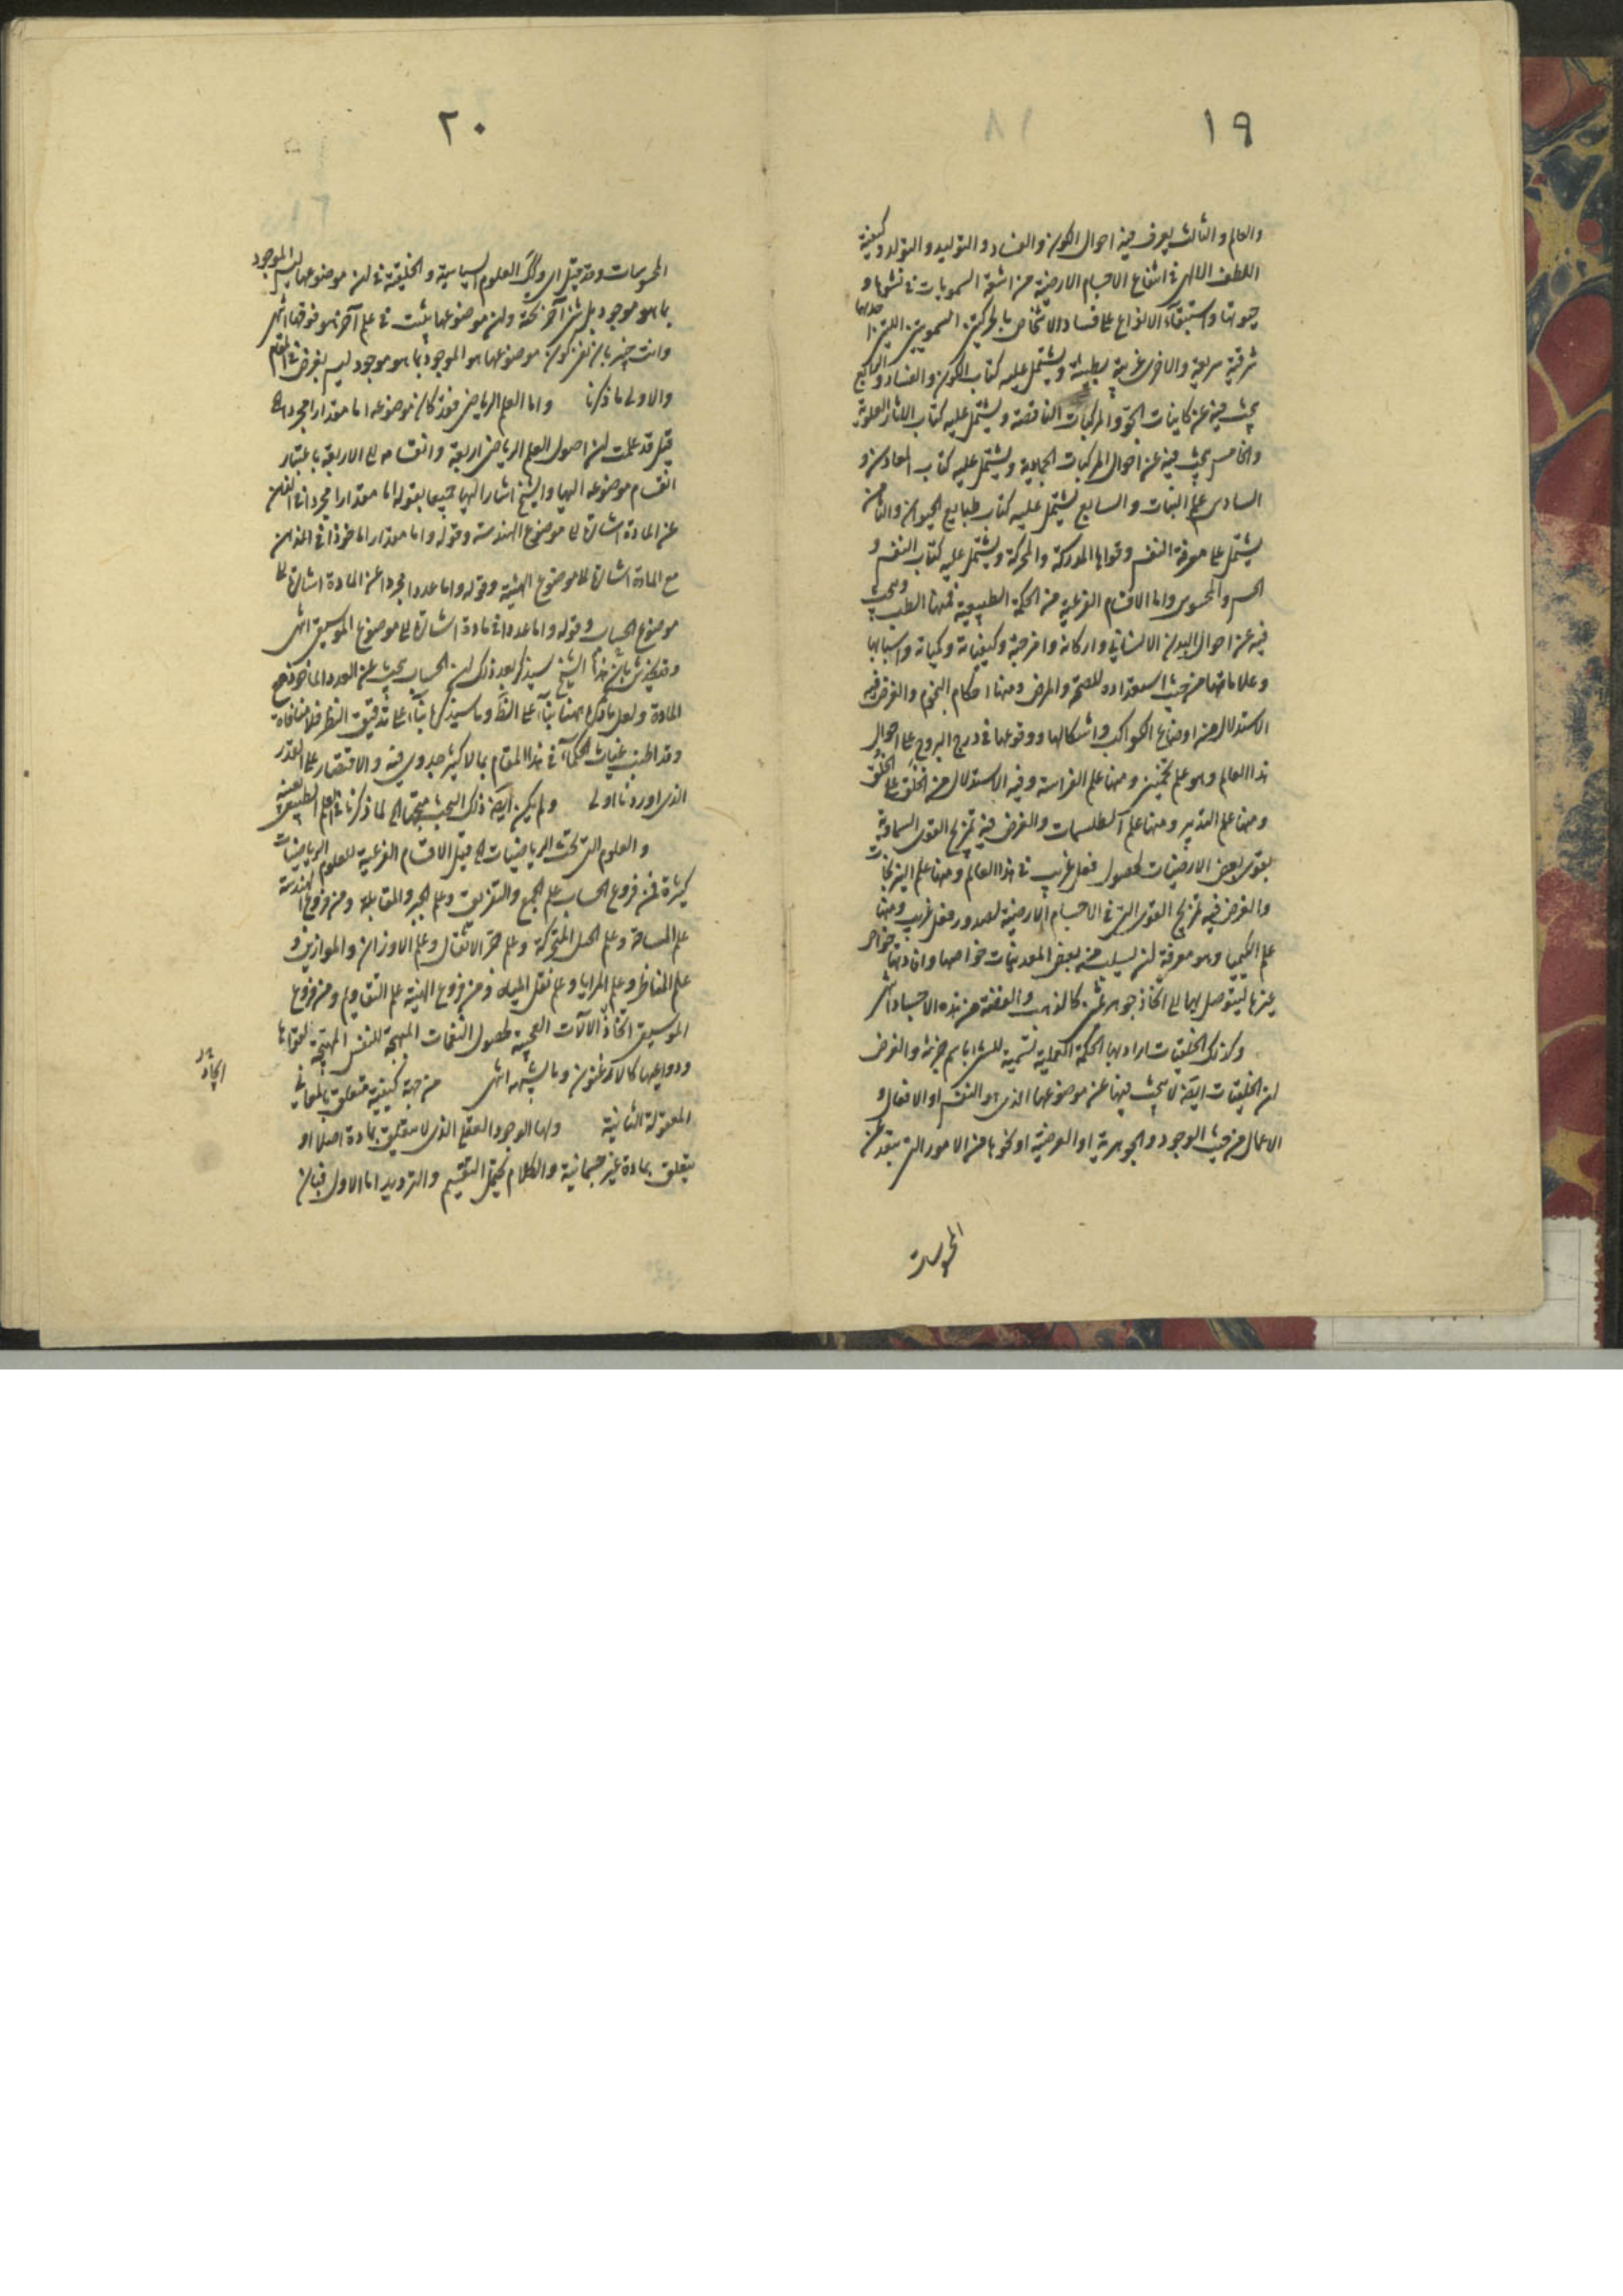 ١٩
والعالم والثالث يعرف فيه احوال الكون والفساد والتوليد والتولد وكيفية
اللطف الالهى فى انتفاع الاجسام الارضية من اشعة السمويات فى نشوها و
حيوتها واستبقاء الانواع على فساد الاشخاص بالحركتين السمويتين اللتين احديهما
شرقية سريعة والاخرى غربية بطيئة ويشتمل عليه كتاب الكون والفساد والرابع
يبحث فيه عن كاينات الجو والمركبات الناقصة ويشتمل عليه كتاب الاثار العلوية
والخامس يبحث فيه عن احوال المركبات الجمادية ويشتمل عليه كتاب المعادن و
السادس علم النبات والسابع يشتمل عليه كتاب طبايع الحيوان والثامن
يشتمل على معرفة النفس وقواها المدركة والمحركة ويشتمل عليه كتاب النفس و
الحس والمحسوس واما الاقسام الفرعية من الحكمة الطبيعية فمنها الطب ويبحث
فيه عن احوال البدن الانسانى واركانه وامزجته وكيفياته وكمياته واسبابها
وعلاماتها من حيث استعداده للصحة والمرض ومنها احكام النجوم والغرض فيه
الاستدلال من اوضاع الكواكب واشكالها ووقوعها فى درج البروج على احوال
هذا العالم وهو علم تخمين ومنها علم الفراسة وفيه الاستدلال من الخلق على الخلق
ومنها علم التعبير ومنها علم الطلسمات والغرض فيه تمزيج القوى السماوية
بقوى بعض الارضيات لحصول فعل غريب فى هذا العالم ومنها علم النيرنجات
والغرض فيه تمزيج القوى التى فى الاجسام الارضية لصدور فعل غريب ومنها
علم الكيميا وهو معرفة ان يسلب من بعض المعدنيات خواصها وافادتها خواص
غيرها ليتوصل بها الى اتخاذ جوهر ثمين كالذهب والفضة من هذه الاجساد انتهى
وكذلك الخلقيات اراد بها الحكمة العملية تسمية للشىء باسم جزئه والغرض
ان الخلقيات ايضا لا يبحث فيها عن موضوعها الذى هو النفس او الافعال و
الاعمال من حيث الوجود والجوهرية او العرضية او نحوها من الامور التى يتقدم عن
المحسوسات
٢٠
المحسوسات وقد قيل اى وكك العلوم السياسية والخلقية فى ان موضوعها ليس الموجود
بما هو موجود بل شىء آخر تحته وان موضوعها يثبت فى علم آخر هو فوقها انتهى
وانت خبير بان نفى كون موضوعها هو الموجود بما هو موجود ليس بغرض فى المقام
والاولى ما ذكرنا واما العلم الرياضى فقد كان موضوعه اما مقدارا مجردا الخ
قيل قد علمت ان اصول العلم الرياضى اربعة وانقسامه الى الاربعة باعتبار
انقسام موضوعه اليها والشيخ اشار اليها جميعا بقوله اما مقدارا مجردا فى الذهن
عن المادة اشارة الى موضوع الهندسة وقوله واما مقدارا ماخوذا فى الذهن
مع المادة اشارة الى موضوع الهيئة وقوله واما عددا مجردا عن المادة اشارة الى
موضوع الحساب وقوله واما عددا فى مادة اشارة الى موضوع الموسيقى انتهى
وقد يخدش بان هذا الشيخ سيذكر بعد ذلك ان الحساب يبحث عن العدد الماخوذ مع
المادة ولعل ما ذكره ههنا بناء على الظ وما سيذكرها بناء على تدقيق النظر فلا منافاة
وقد اطنب غياث الحكماء فى هذا المقام بما لا كثير جدوى فيه والاقتصار على القدر
الذى اوردنا اولى ولم يكن ايضا ذلك البحث متجها الى لما ذكرنا فى العلم الطبيعى بعينه
والعلوم التى تحت الرياضيات الخ قيل الاقسام الفرعية للعلوم الرياضيات
كثيرة فمن فروع الحساب علم الجمع والتفريق وعلم الجبر والمقابلة ومن فروع الهندسة
علم المساحة وعلم الحيل المتحركة وعلم جر الاثقال وعلم الاوزان والموازين و
علم المناظر وعلم المرايا وعلم نقل المياه ومن فروع الهيئة علم التقاويم ومن فروع
الموسيقى اتخاذ الالآت العجيبة لحصول النغمات المبهجة للنفس المهيجة لقواها
ودواعيها كالارغنون وما يشبهه انتهى من جهة كيفية متعلق بالمعانى
المعقولة الثانية ولها الوجود العقلى الذى لا يتعلق بمادة اصلا او
يتعلق بمادة غير جسمانية والكلام يحتمل التقسيم والترديد اما الاول فبان